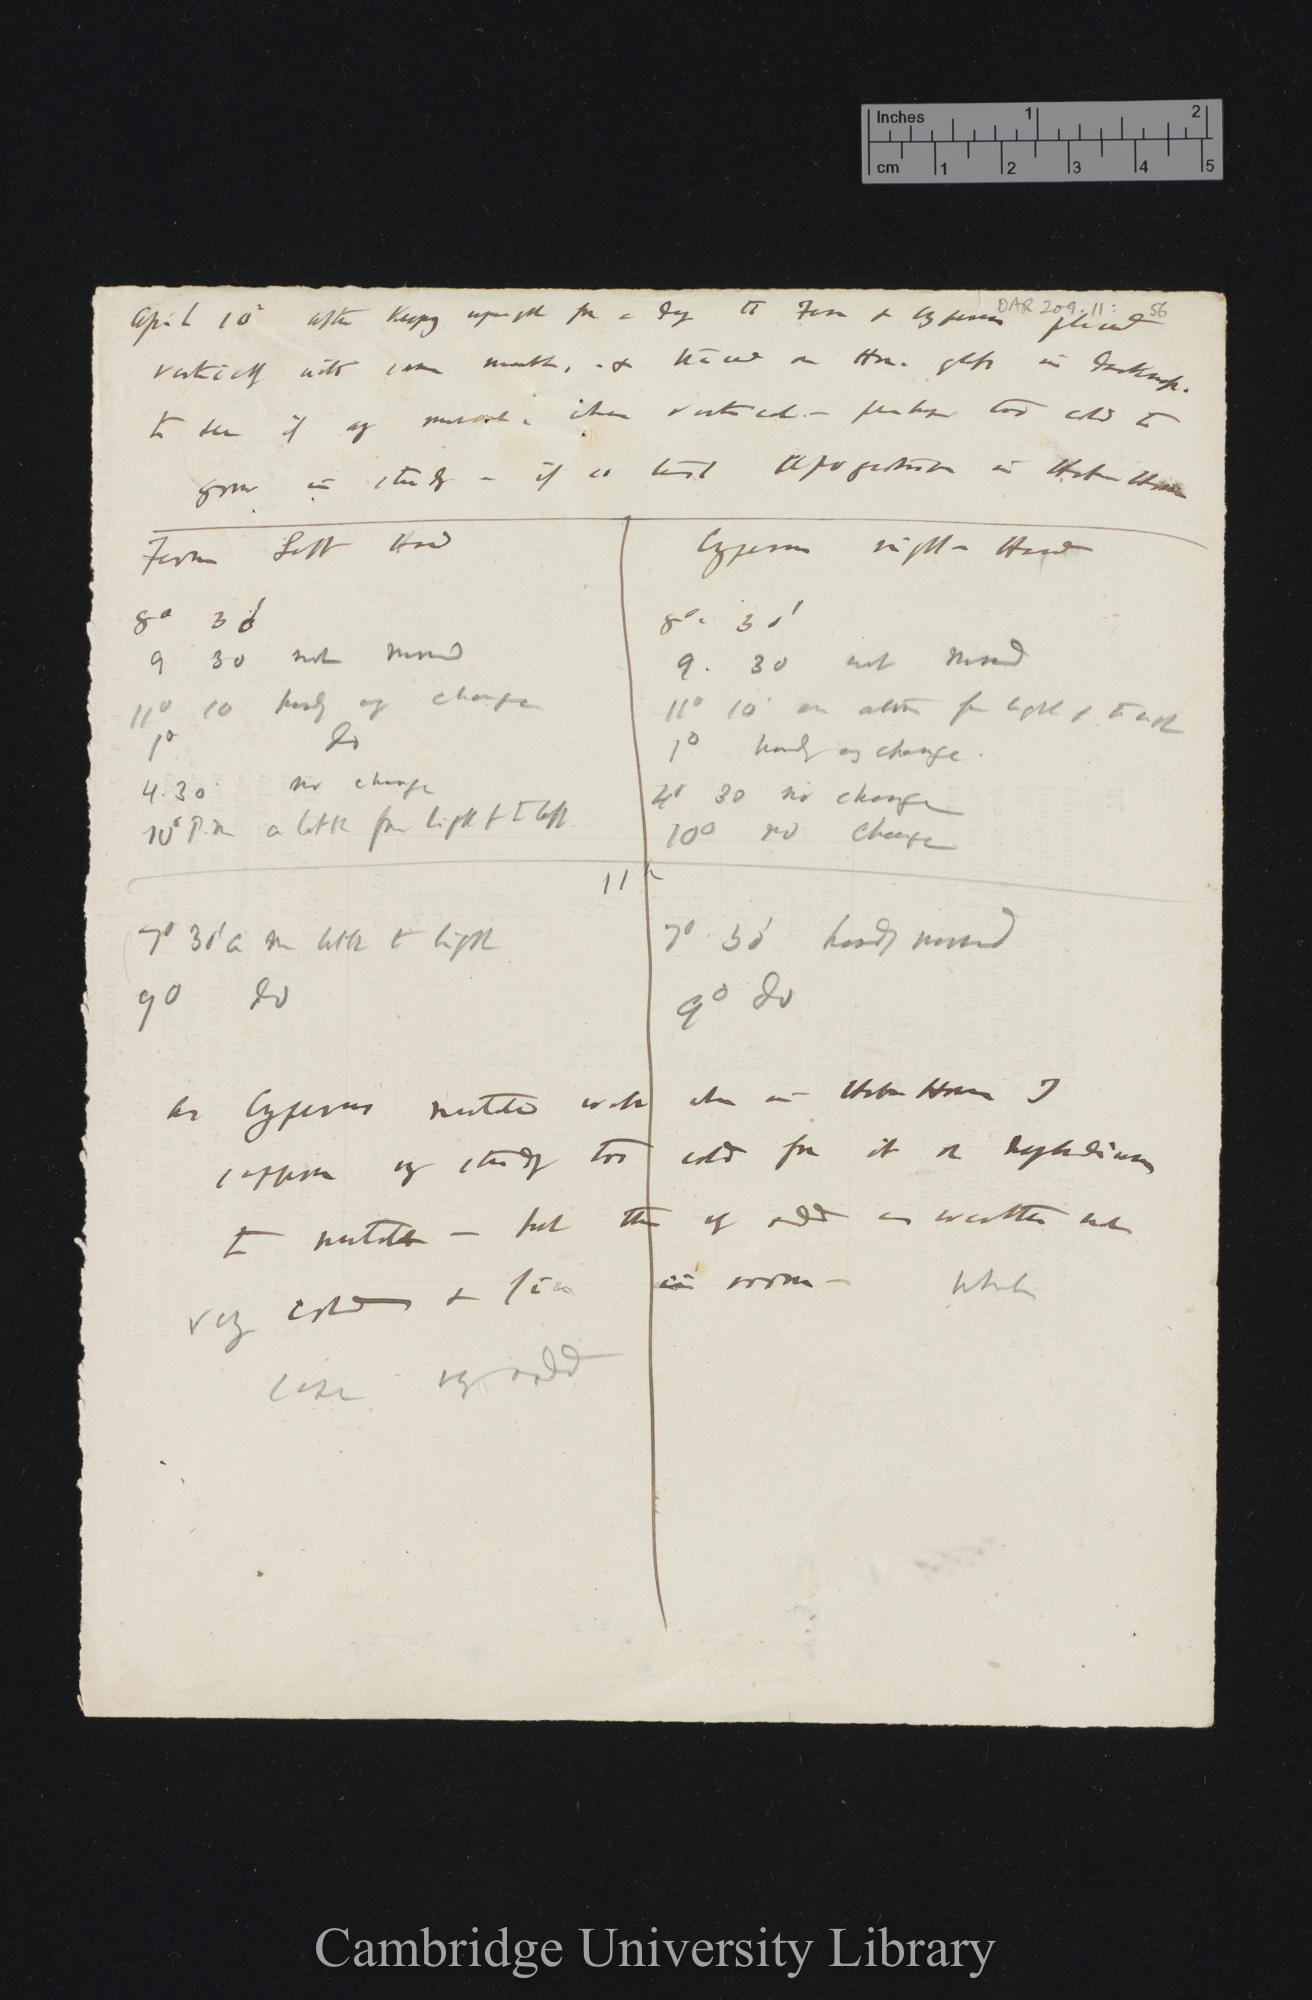 Inches 1 2
cm 1 2 3 4 5
DAR 209.11: 56
April 10° after keeping upright for a day the Fern & Cyperus placed
vertically with same, & traced on Hor. glass in darkness.
to see if any movement when vertical — perhaps too cold to
grow in study — if so test Apogeotropism in Hot House
Fern Left Hand
8° 30'
9 30 not moved
11° 10 hardly any change
1° do
4.30 no change
10° P.m a little from light & to left
Cyperus right-Hand
8° 30'
9. 30 not moved
11° 10' from light & to right
1° hardly any change.
4° 30 no change
10° no change
11
7° 30' a m little to light
9° do
7° 30' hardly moved
9° do
As Cyperus nutated well when in Hot House I
suppose my study too cold for it or
to nutate — but this very odd as weather not
very cold & fire in room —
case very odd
Cambridge University Library